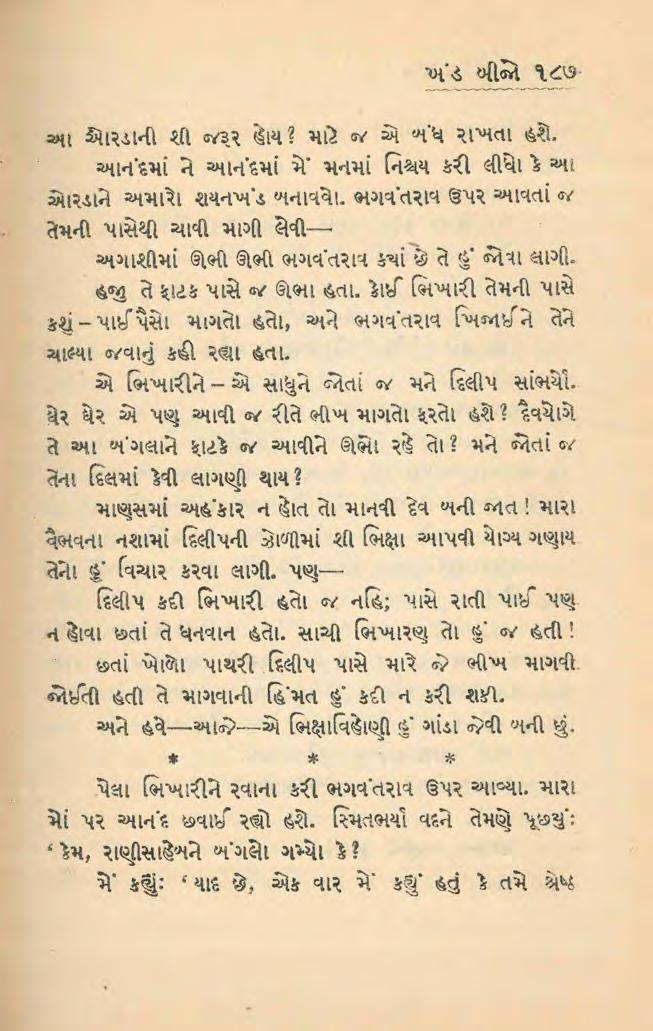 ખંડ બીજો ૧૮૭
આ ઓરડાની શી જરૂર હોય? માટે જ એ બંધ રાખતા હશે.
આનંદમાં ને આનંદમાં મેં મનમાં નિશ્ચય કરી લીધો કે આ
ઓરડાને અમારો શયનખંડ બનાવવો. ભગવંતરાવ ઉપર આવતાં જ
તેમની પાસેથી ચાવી માગી લેવી—
અગાશીમાં ઊભી ઊભી ભગવંતરાવ ક્યાં છે તે હું જોવા લાગી.
હજી તે ફાટક પાસે જ ઊભા હતા. કોઈ ભિખારી તેમની પાસે
કશું – પાઈપૈસો માગતો હતો, અને ભગવંતરાવ ખિજાઈને તેને
ચાલ્યા જવાનું કહી રહ્યા હતા.
એ ભિખારીને – એ સાધુને જોતાં જ મને દિલીપ સાંભર્યો.
ઘેર ઘેર એ પણ આવી જ રીતે ભીખ માગતો ફરતો હશે? દૈવયોગે
તે આ બંગલાને ફાટકે જ આવીને ઊભો રહે તો? મને જોતાં જ
તેના દિલમાં કેવી લાગણી થાય?
માણસમાં અહંકાર ન હોત તો માનવી દેવ બની જાત! મારા
વૈભવના નશામાં દિલીપની ઝોળીમાં શી ભિક્ષા આપવી યોગ્ય ગણાય
તેનો હું વિચાર કરવા લાગી. પણ—
દિલીપ કદી ભિખારી હતો જ નહિ; પાસે રાતી પાઈ પણ
ન હોવા છતાં તે ધનવાન હતો. સાચી ભિખારણ તો હું જ હતી!
છતાં ખોળો પાથરી દિલીપ પાસે મારે જે ભીખ માગવી
જોઈતી હતી તે માગવાની હિંમત હું કદી ન કરી શકી.
અને હવે—આજે—એ ભિક્ષાવિહોણી હું ગાંડા જેવી બની છું.
* * *
પેલા ભિખારીને રવાના કરી ભગવંતરાવ ઉપર આવ્યા. મારા
મોં પર આનંદ છવાઈ રહ્યો હશે. સ્મિતભર્યા વદને તેમણે પૂછ્યું:
‘કેમ, રાણીસાહેબને બંગલો ગમ્યો કે?
મેં કહ્યું: ‘યાદ છે, એક વાર મેં કહ્યું હતું કે તમે શ્રેષ્ઠ